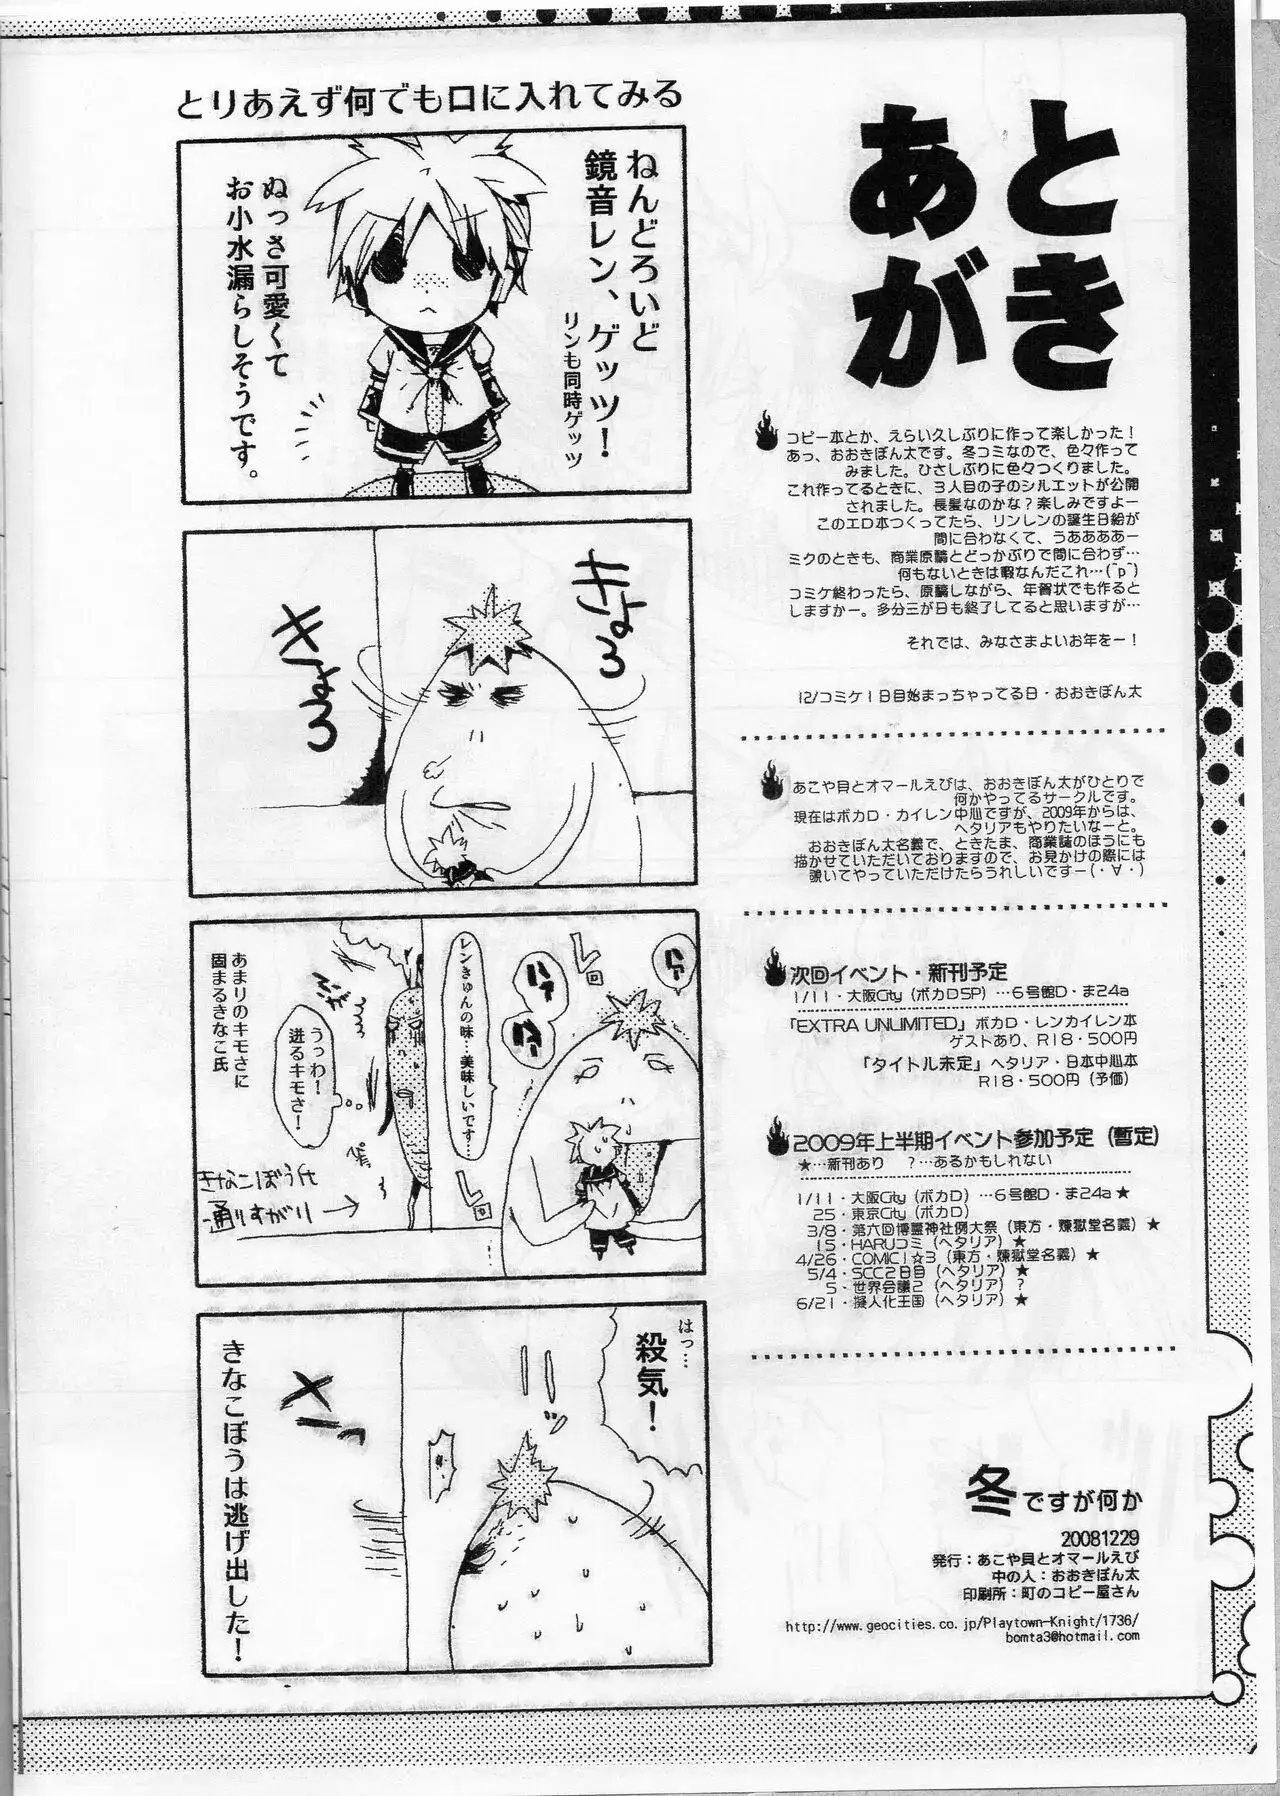 あとがき
コピー本とか、えらい久しぶりに作って楽しかった！
あっ、おおきぼん太です。冬コミなので、色々作って
みました。ひさしぶりに色々つくりました。
これ作ってるときに、3人目の子のシルエットが公開
されました。長髪なのかな？楽しみですよー
このエロ本つくってたら、リンレンの誕生日絵が
間に合わなくて、うあああああー
ミクのときも、商業原稿とどっかぶりで間に合わず…
何もないときは暇なんだこれ…(^p^)
コミケ終わったら、原稿しながら、年賀状でも作ると
しますかー。多分三が日も終了してると思いますが…
それでは、みなさまよいお年をー！
12/コミケ1日目始まっちゃってる日・おおきぼん太
あこや貝とオマールえびは、おおきぼん太がひとりで
何かやってるサークルです。
現在はボカロ・カイレン中心ですが、2009年からは、
ヘタリアもやりたいなーと。
おおきぼん太名義で、ときたま、商業誌のほうにも
描かせていただいておりますので、お見かけの際には
覗いてやっていただけたらうれしいですー(・∀・)
次回イベント・新刊予定
1/11・大阪City（ボカロSP）…6号館D・ま24a
「EXTRA UNLIMITED」ボカロ・レンカイレン本
ゲストあり、R18・500円
「タイトル未定」ヘタリア・日本中心本
R18・500円（予価）
2009年上半期イベント参加予定（暫定）
★…新刊あり　？…あるかもしれない
1/11・大阪City（ボカロ）…6号館D・ま24a★
25・東京City（ボカロ）
3/8・第六回博霊神社例大祭（東方・煉獄堂名義）★
15・HARUコミ（ヘタリア）★
4/26・COMIC1☆3（東方・煉獄堂名義）★
5/4・SCC2日目（ヘタリア）★
5・世界会議2（ヘタリア）？
6/21・擬人化王国（ヘタリア）★
冬ですが何か
20081229
発行：あこや貝とオマールえび
中の人：おおきぼん太
印刷所：町のコピー屋さん
http://www.geocities.co.jp/Playtown-Knight/1736/
bomta3@hotmail.com
とりあえず何でも口に入れてみる
ねんどろいど
鏡音レン、ゲッツ！
リンも同時ゲッツ
ぬっさ可愛くて
お小水漏らしそうです。
きょろ
きょろ
ハァ
レロ
ハァ
ハァ
レンきゅんの味…美味しいです…
レロ
うっわ！
迸るキモさ！
あまりのキモさに
固まるきなこ氏
きなこぼう氏
通りすがり
はっ…
殺気！
ッ
きなこぼうは逃げ出した！